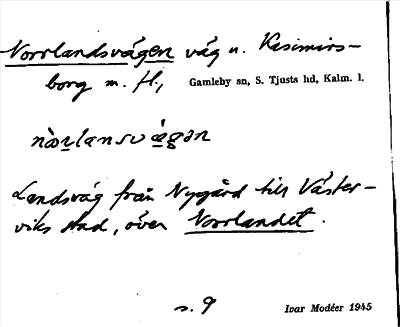 Norrlandsvägen väg u. Kasimirs-
borg m. fl., Gamleby sn, S. Tjusts hd, Kalm. l.
nòrlansvä́gən
Landsväg från Nygård till Väster-
viks stad, över Norrlandet.
s. 9 Ivar Modéer 1945